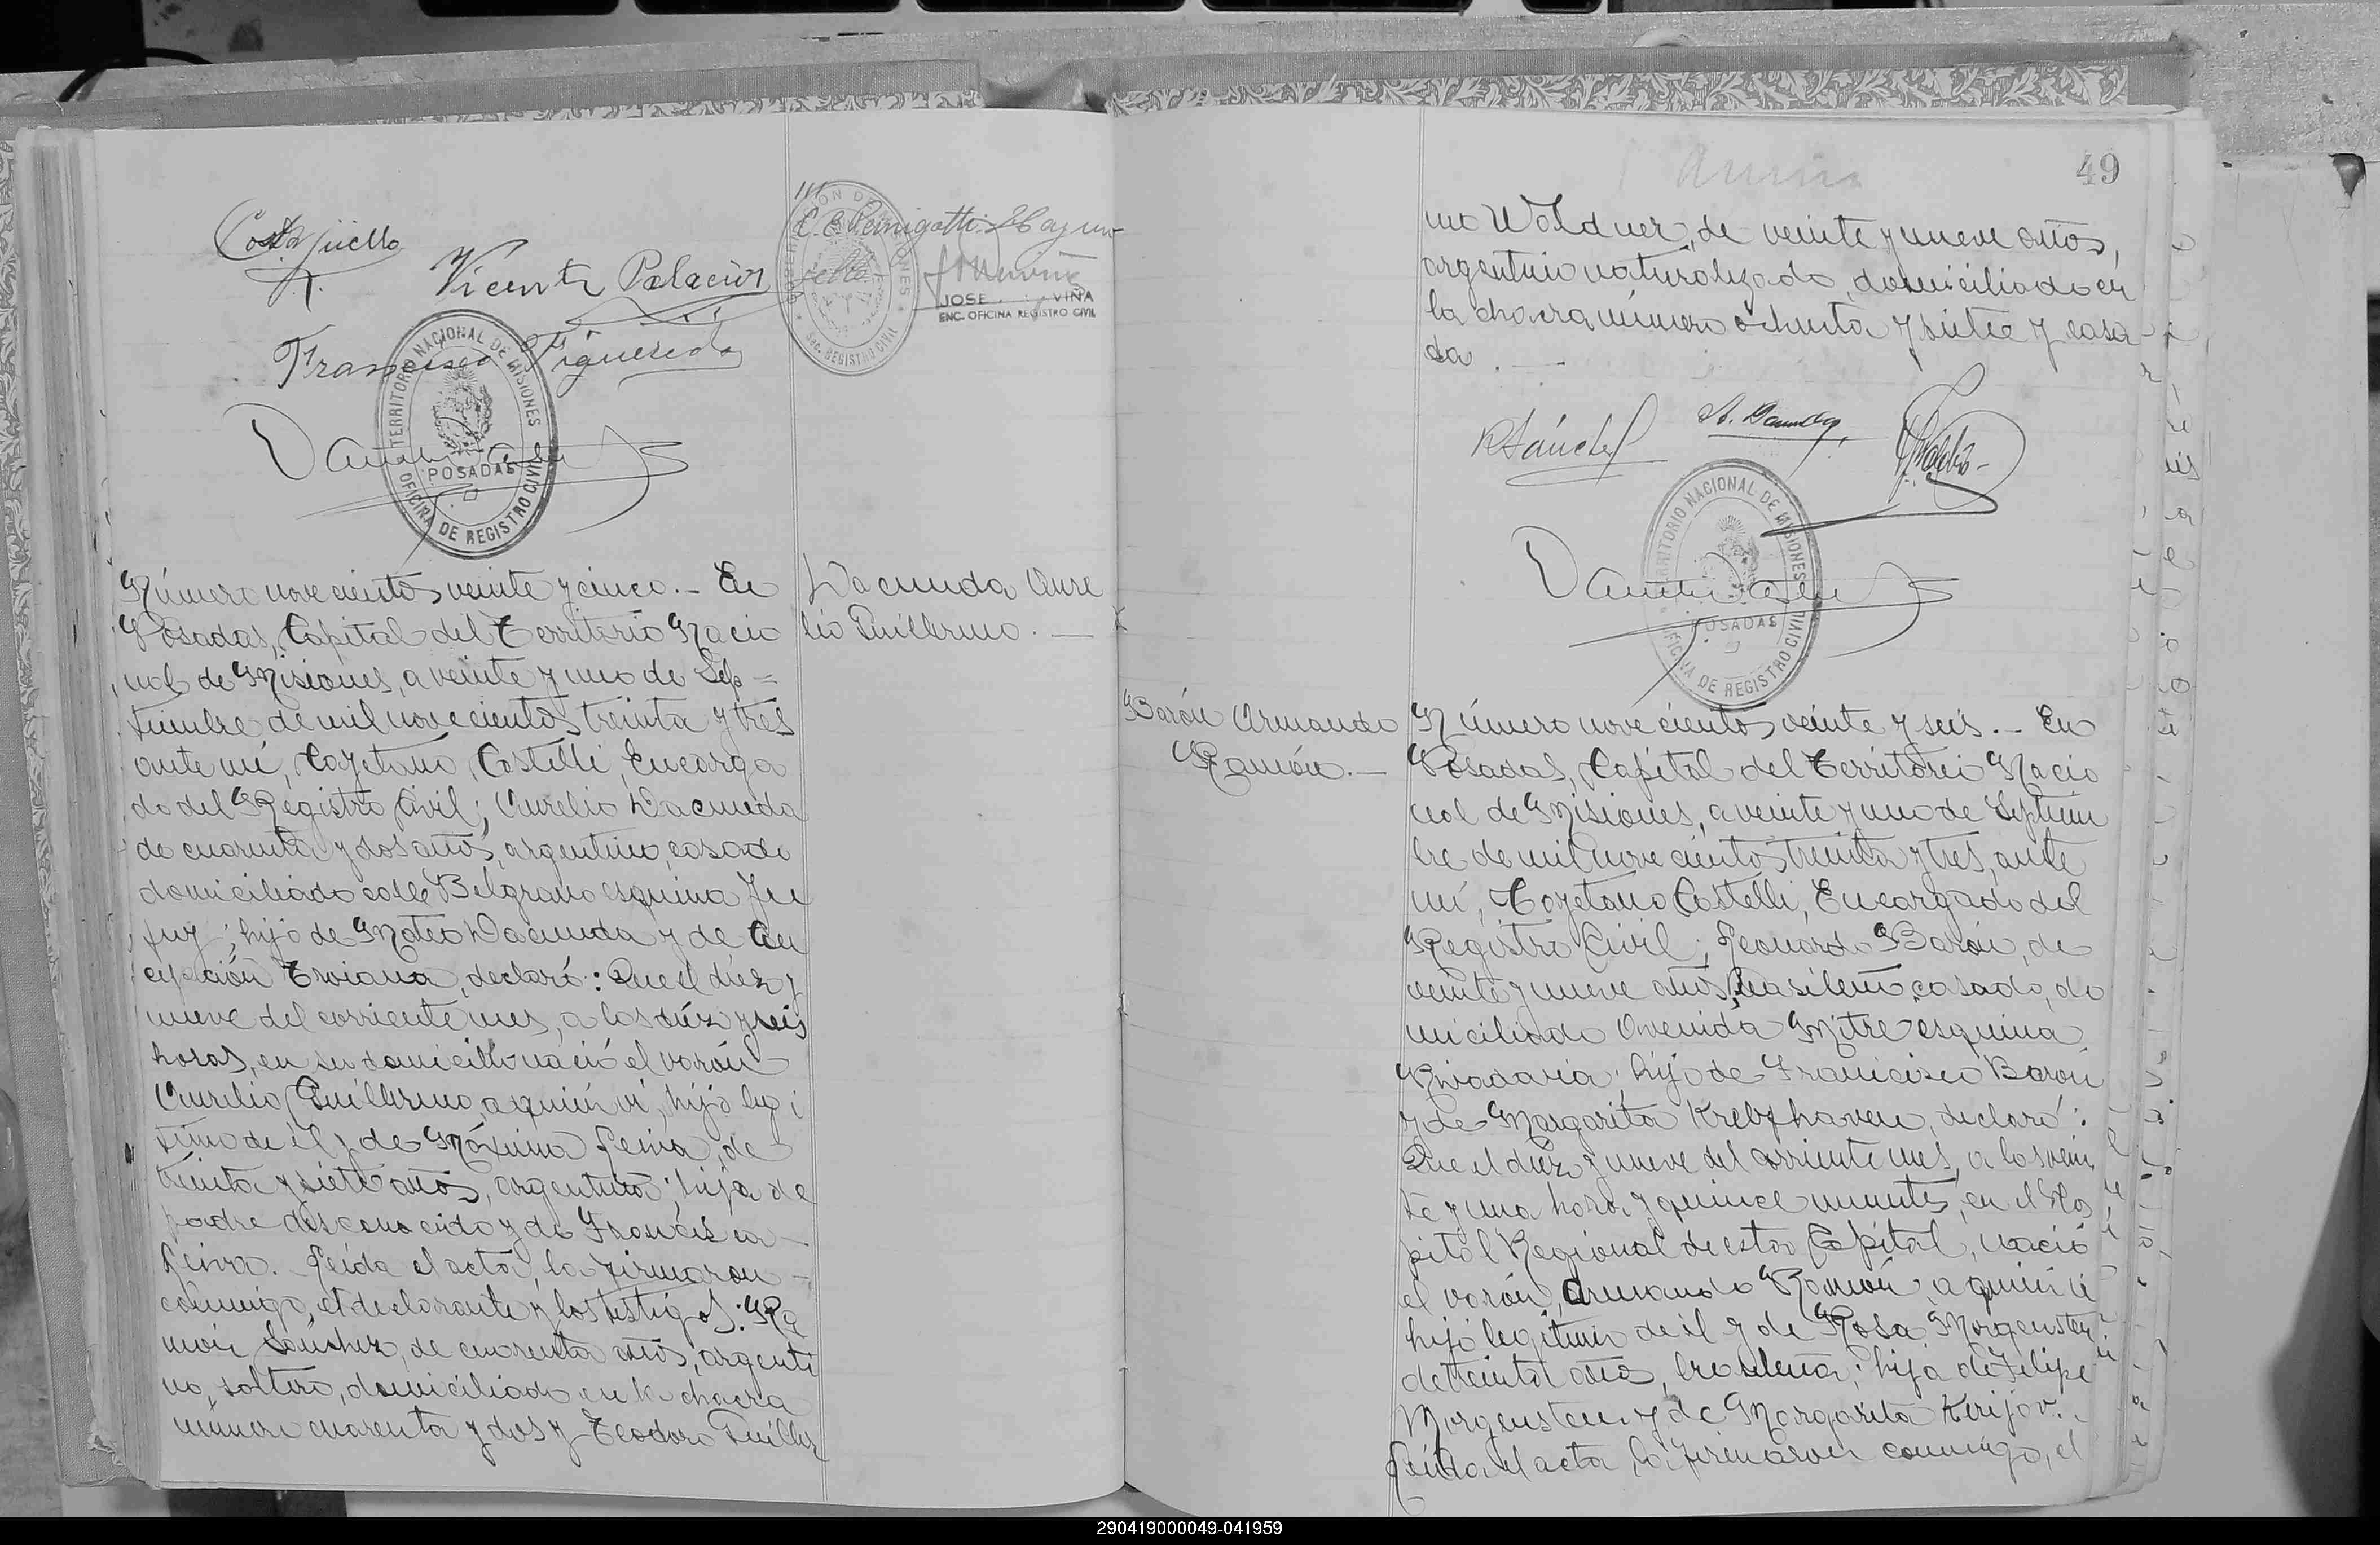 Vicente Palacios
Francisco Figueredo
TERRITORIO NACIONAL DE MISIONES
POSADAS
OFICINA DE REGISTRO CIVIL
REGISTRO CIVIL
JOSE VIÑA
ENC. OFICINA REGISTRO CIVIL
Número novecientos veinte y cinco.- En
Posadas, Capital del Territorio Nacio
nal de Misiones, a veinte y uno de Sep=
tiembre de mil novecientos treinta y tres
ante mí, Cayetano Castelli, Encarga
do del Registro Civil; Aurelio Dacunda
de cuarenta y dos años, argentino, casado
domiciliado calle Belgrano esquina Ju
juy; hijo de Mateo Dacunda y de Con
cepción Troiana, declaró: Que el diez y
nueve del corriente mes, a las diez y seis
horas, en su domicilio nació el varón
Aurelio Guillermo, a quien vi, hijo legi
timo de él y de Máxima Leiva, de
treinta y siete años, argentina; hija de
padre desconocido y de Francisca
Leiva. Leída el acta, la firmaron
conmigo, el declarante y los testigos: Ra
món Sánchez, de cuarenta años, argenti
no, soltero, domiciliado en la chacra
número cuarenta y dos y Teodoro Guiller
Dacunda Aure
lio Guillermo.-
49
mo Waldner, de veinte y nueve años,
argentino naturalizado, domiciliado en
la chacra número ochenta y siete y casa
do.-
RSánchez
TERRITORIO NACIONAL DE MISIONES
POSADAS
OFICINA DE REGISTRO CIVIL
Barón Armando
Ramón.-
Número novecientos veinte y seis.- En
Posadas, Capital del Territorio Nacio
nal de Misiones, a veinte y uno de Septiem
bre de mil novecientos treinta y tres, ante
mí, Cayetano Castelli, Encargado del
Registro Civil; Leonardo Barón, de
veinte y nueve años, brasileño, casado, do
miciliado Avenida Mitre esquina
Rivadavia; hijo de Francisco Barón
y de Margarita Krebfhaven, declaró:
Que el diez y nueve del corriente mes, a las vein
te y una hora y quince minutos, en el Hos
pital Regional de esta Capital, nació
el varón, Armando Ramón, a quien vi
hijo legítimo de él y de Rosa Morgenstern
de treinta años, brasileña; hija de Felipe
Morgenstern y de Margarita Kerijov.
Leída el acta, la firmaron conmigo, el
290419000049-041959